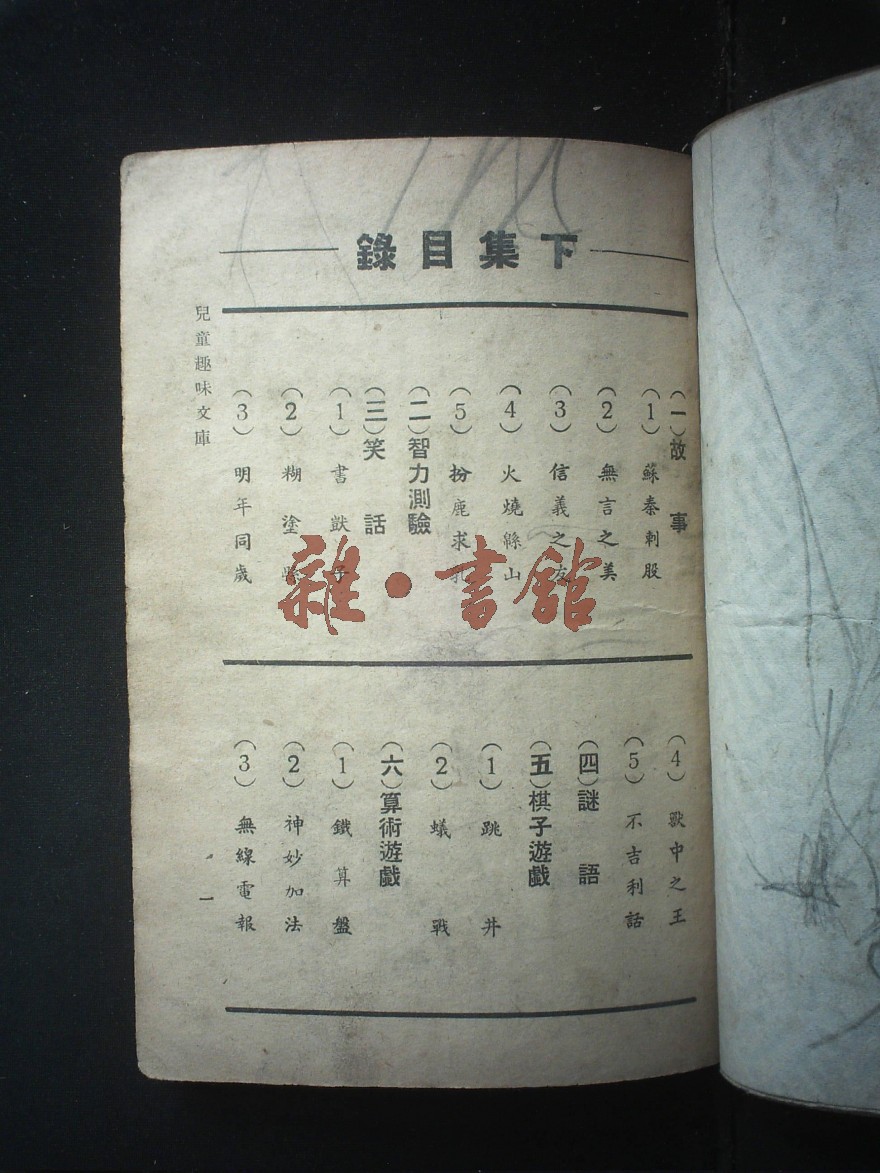 下集目錄
(一)故事
(1)蘇秦刺股
(2)無言之美
(3)信義之友
(4)火燒緜山
(5)扮鹿求乳
(二)智力測驗
(三)笑話
(1)書獃子
(2)糊塗
(3)明年同歲
(4)獸中之王
(5)不吉利話
(四)謎語
(五)棋子遊戲
(1)跳井
(2)蟻戰
(六)算術遊戲
(1)鐵算盤
(2)神妙加法
(3)無線電報
兒童趣味文庫
一
雜·書館